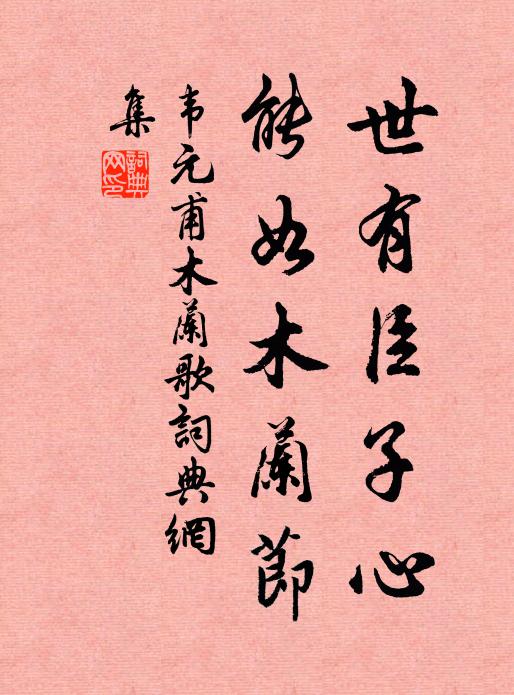 世有臣子心
能如木蘭節
韦元甫木蘭歌詞典網
集
詞典网印